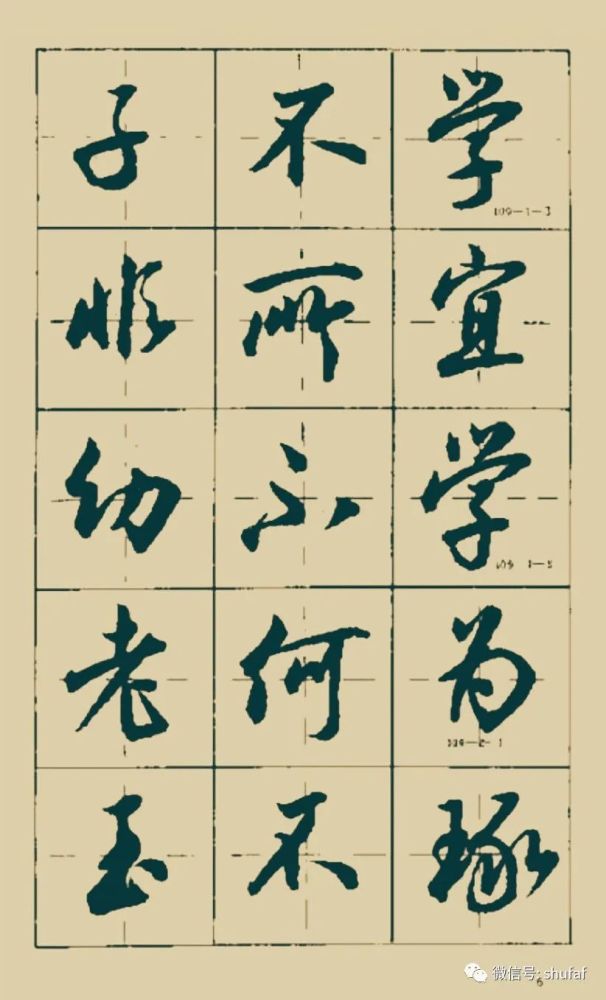 子不学
109-1-3
非所宜
幼不学
109-1-5
老何为
109-2-1
玉不琢
6
微信号: shufaf